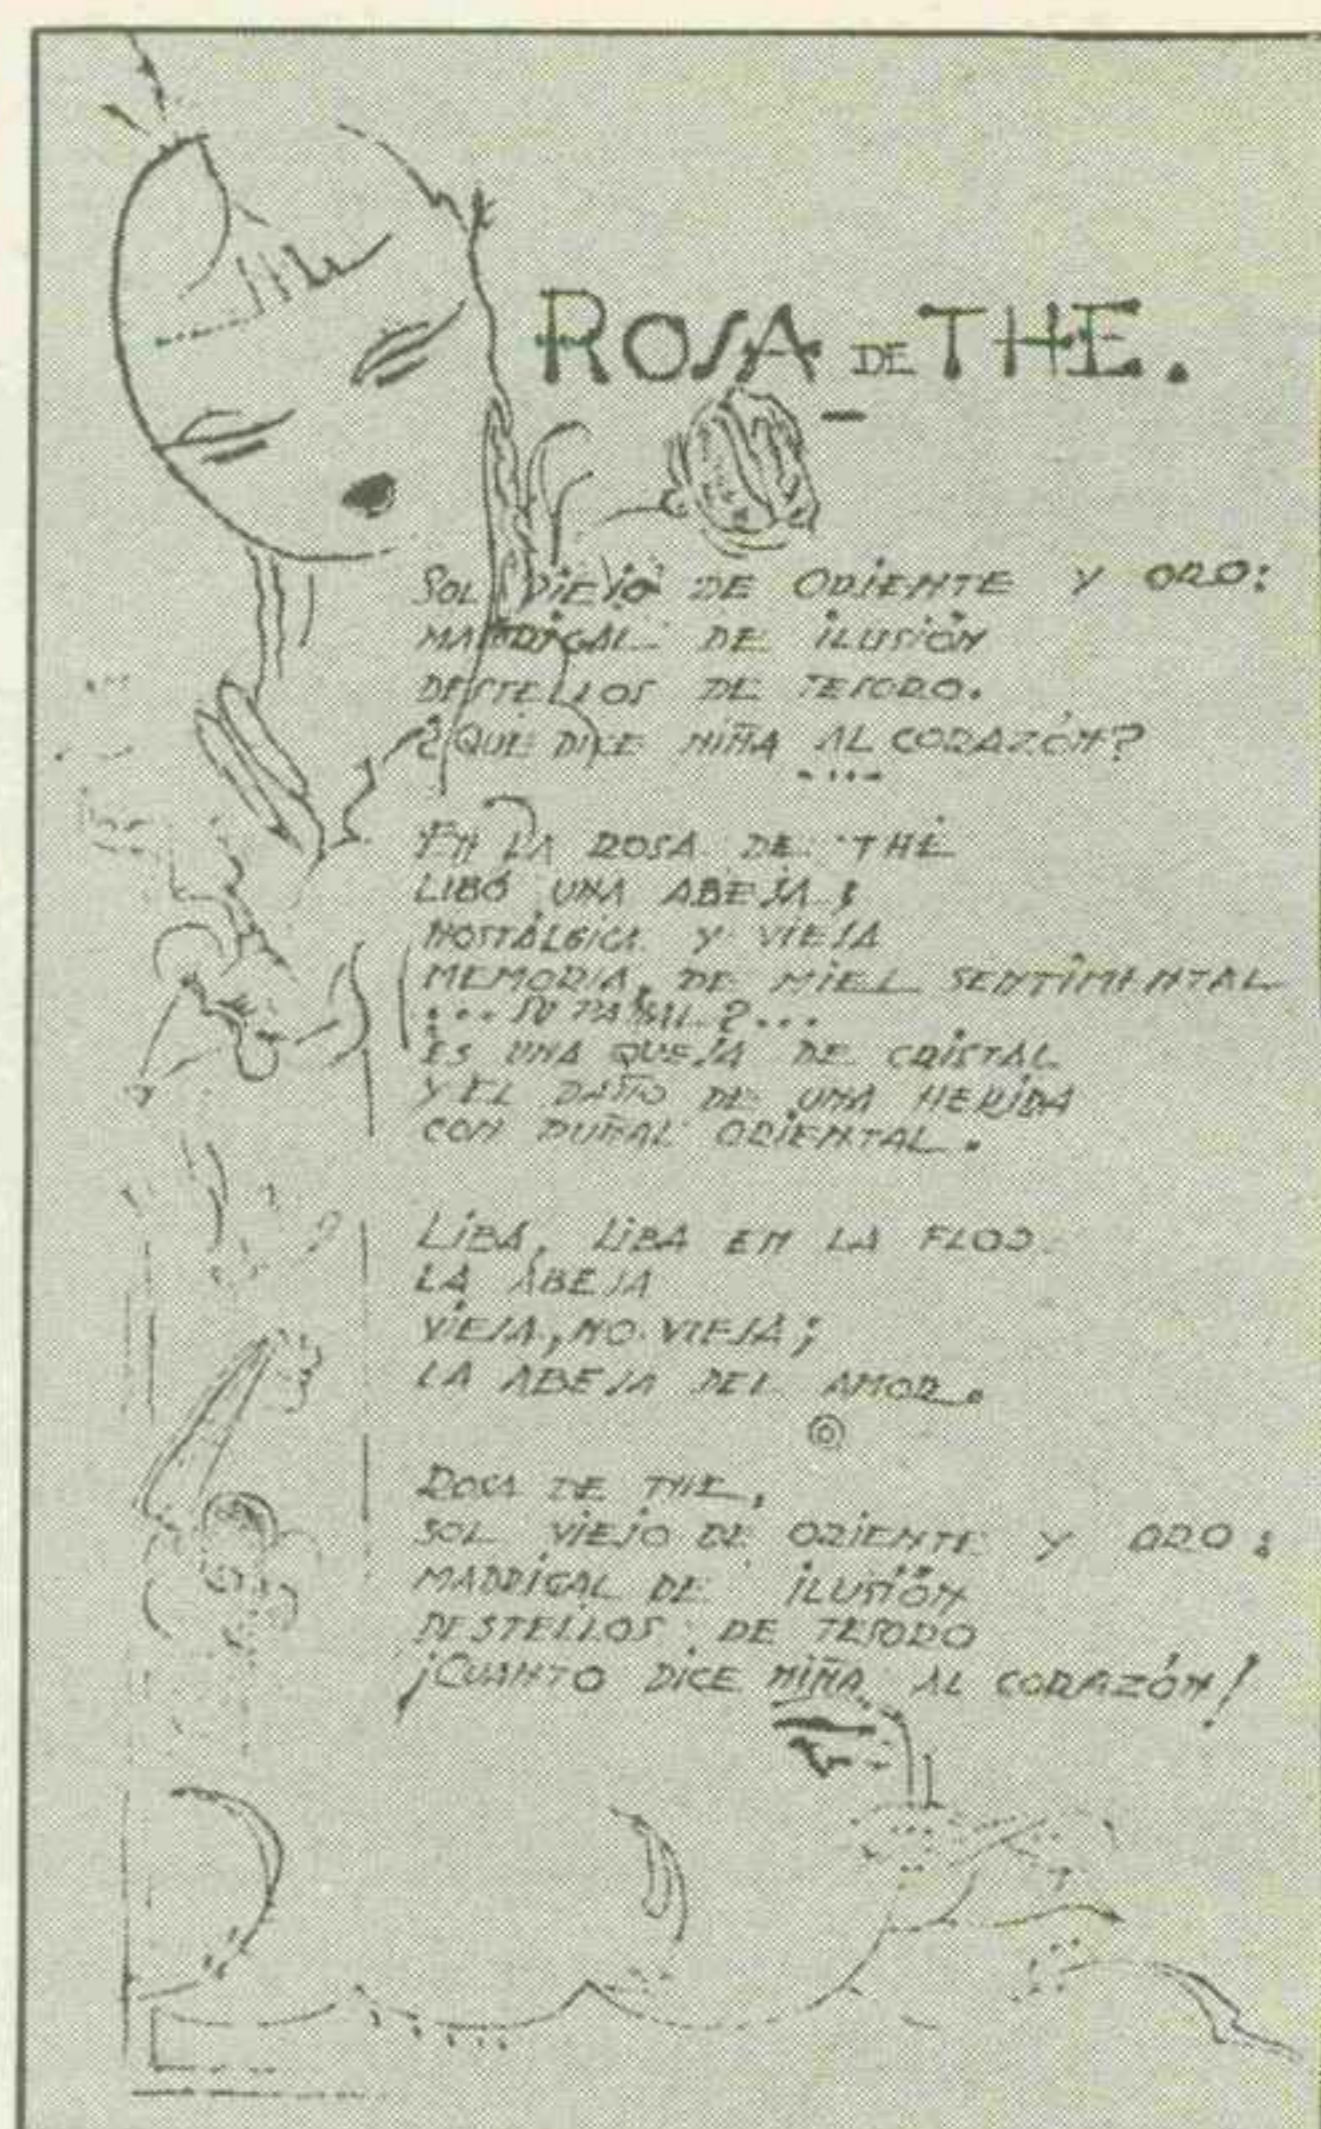 ROSA DE THE.
SOL VIEJO DE ORIENTE Y ORO:
MADRIGAL DE ILUSIÓN
DESTELLOS DE TESORO.
¿QUÉ DICE NIÑA AL CORAZÓN?
EN LA ROSA DE THÉ
LIBÓ UNA ABEJA;
NOSTÁLGICA Y VIEJA
MEMORIA, DE MIEL SENTIMENTAL
... SU PANAL?...
ES UNA QUEJA DE CRISTAL
Y EL DAÑO DE UNA HERIDA
CON PUÑAL ORIENTAL.
LIBA, LIBA EN LA FLOR
LA ABEJA
VIEJA, NO VIEJA;
LA ABEJA DEL AMOR.
ROSA DE THE,
SOL VIEJO DE ORIENTE Y ORO:
MADRIGAL DE ILUSIÓN
DESTELLOS DE TESORO
¡CUANTO DICE NIÑA AL CORAZÓN!